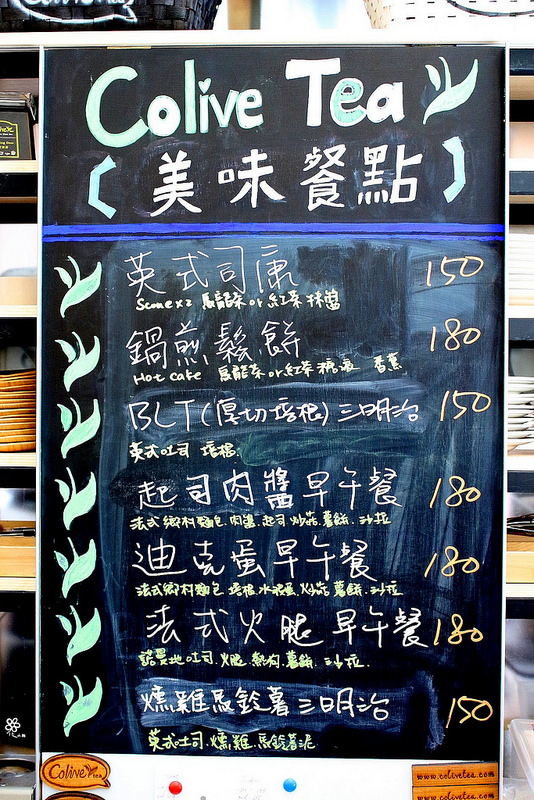 Colive Tea
美味餐點
英式司康 150
Sconex2 烏龍茶or紅茶抹醬
鍋煎鬆餅 180
Hot Cake 烏龍茶or紅茶 香蕉
BLT(厚切培根)三明治 150
英式吐司 培根.
起司肉醬早午餐 180
法式鄉村麵包.肉醬.起司.炒菇.薯餅.沙拉
迪克蛋早午餐 180
法式鄉村麵包.培根.水波蛋.炒菇.薯餅.沙拉
法式火腿早午餐 180
諾曼地吐司.火腿.熱狗.薯餅.沙拉.
燻雞馬鈴薯三明治 150
英式吐司.燻雞.馬鈴薯泥
Colive tea
www.colivetea.com
www.colivetea.com